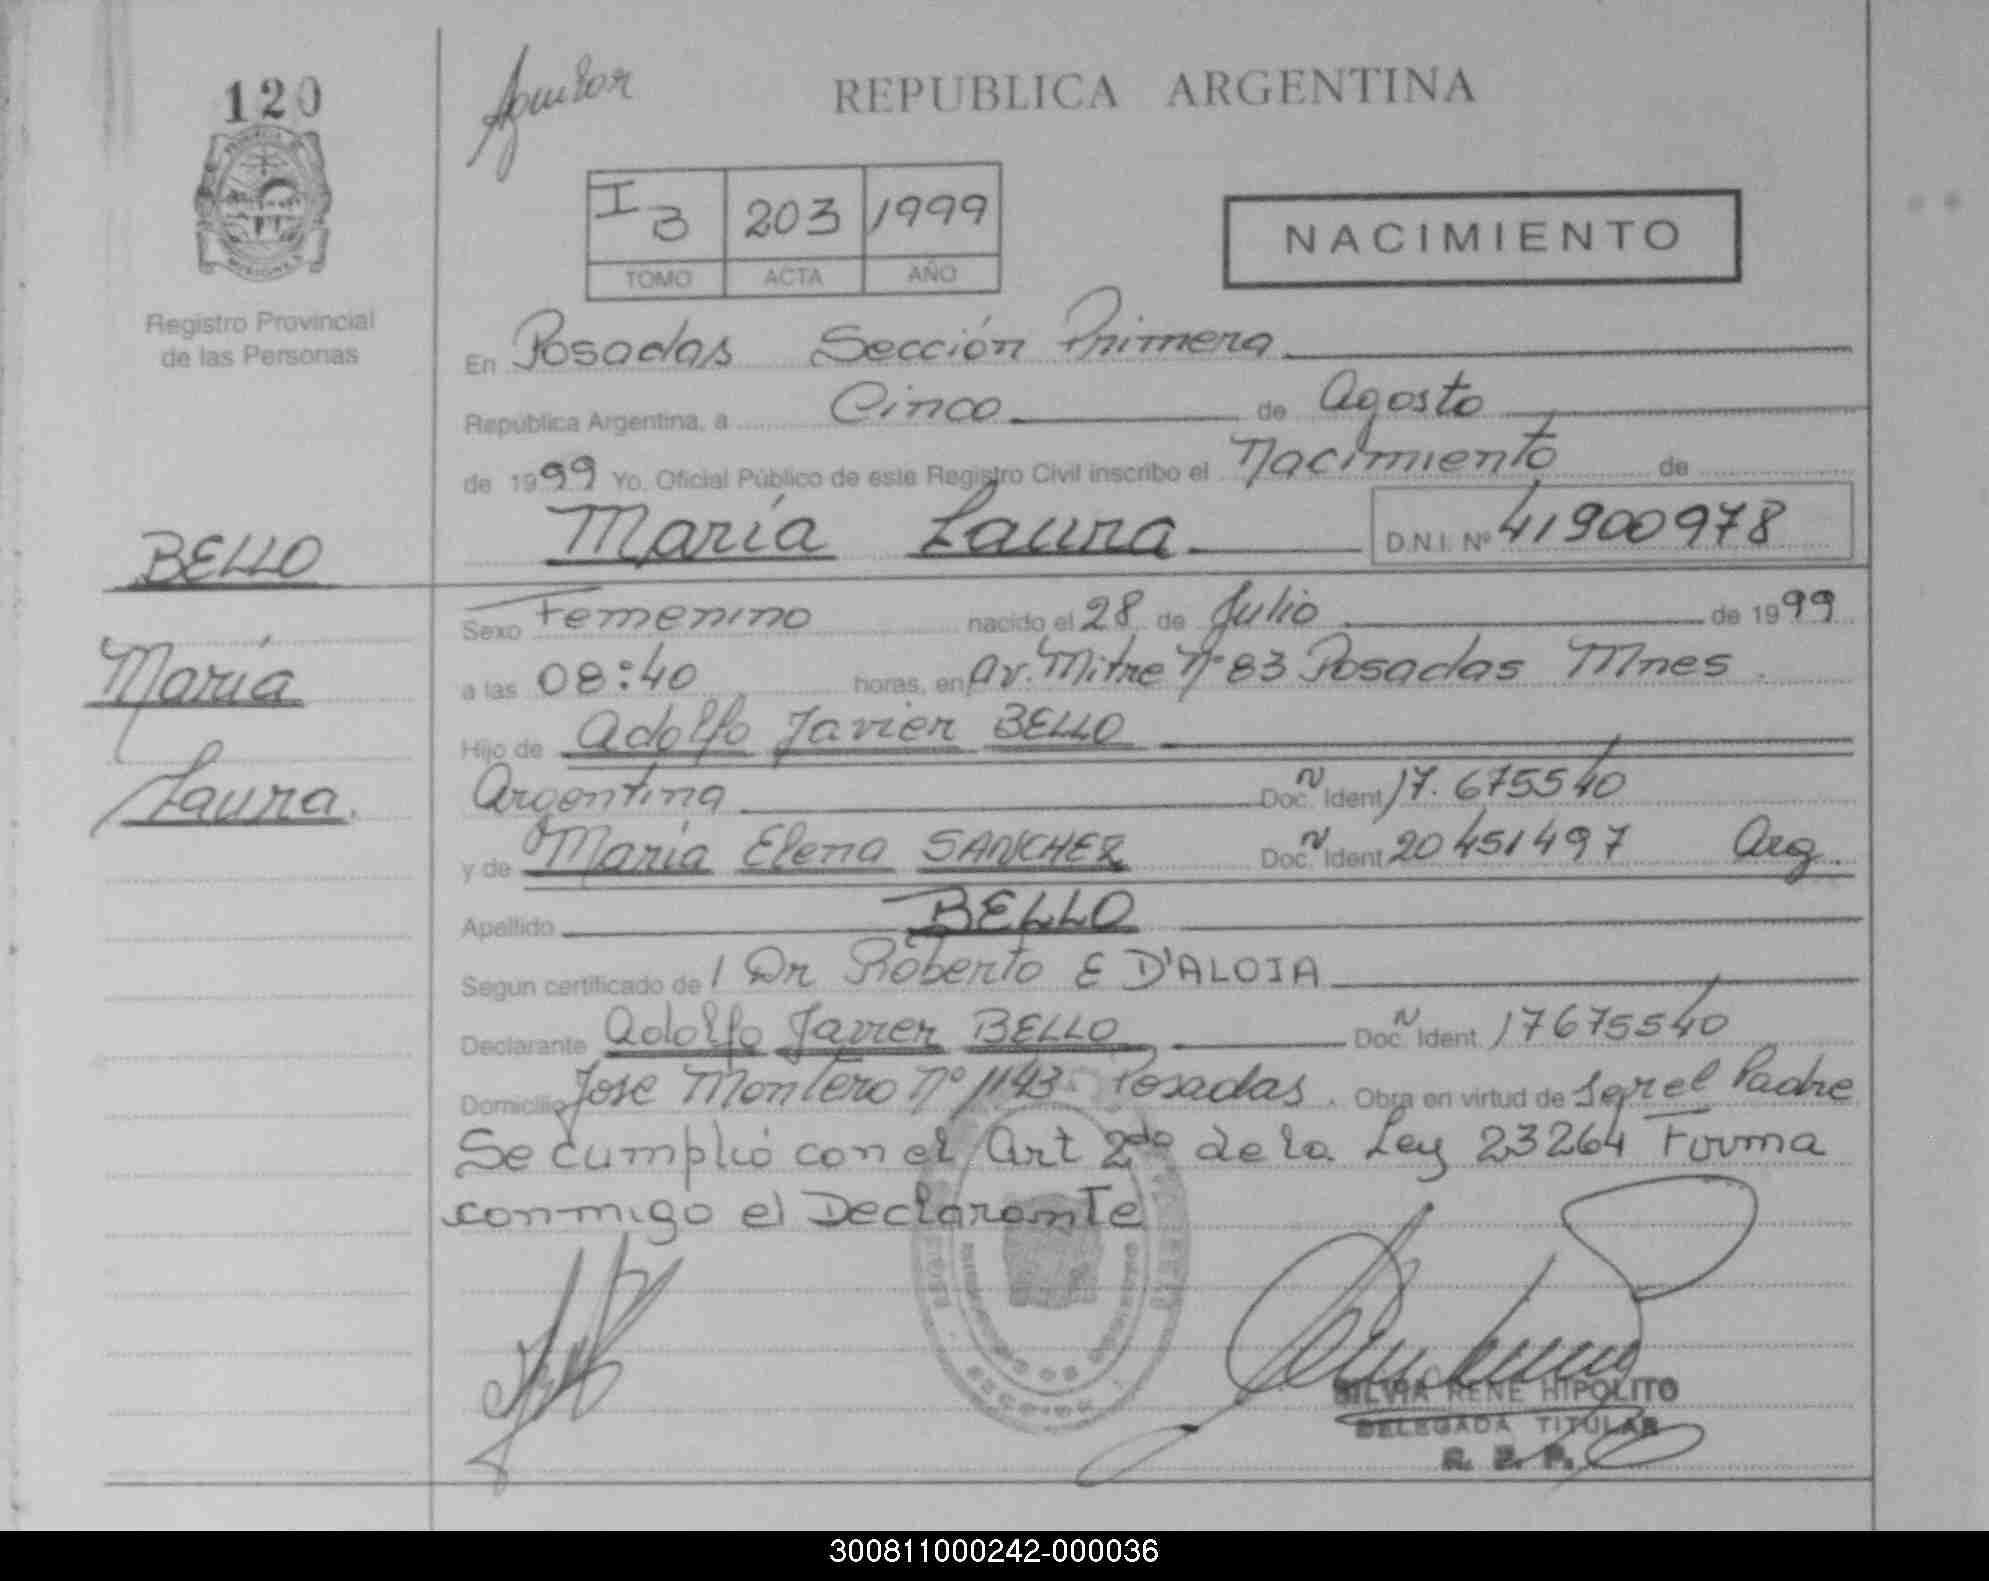 120
Aguilar
REPUBLICA ARGENTINA
I 3 203 1999
TOMO ACTA AÑO
NACIMIENTO
Registro Provincial
de las Personas
En Posadas Sección Primera
República Argentina, a Cinco de Agosto
de 1999 Yo, Oficial Público de este Registro Civil inscribo el Nacimiento de
María Laura D.N.I. Nº 41900978
BELLO
María
Laura.
Sexo Femenino nacido el 28 de Julio de 1999
a las 08:40 horas, en Av. Mitre Nº 83 Posadas Mnes
Hijo de Adolfo Javier BELLO
Argentina Doc. Ident 17.675540
y de María Elena SANCHEZ Doc. Ident 20451497 Arg.
Apellido BELLO
Según certificado de l Dr Roberto E D'ALOIA
Declarante Adolfo Javier BELLO Doc. Ident 17675540
Domicilio Jose Montero Nº 1143 Posadas. Obra en virtud de Ser el Padre
Se cumplió con el Art 2do de la Ley 23264 Firma
conmigo el Declarante
SILVIA RENE HIPOLITO
DELEGADA TITULAR
R. P. P.
300811000242-000036